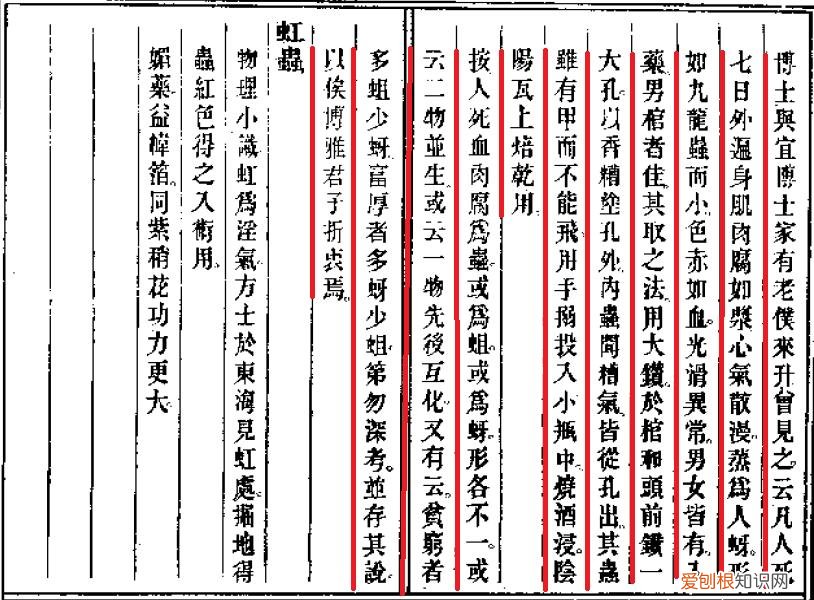 博士與宜博士家有老僕來升曾見之云凡人死
七日外遍身肌肉腐如漿心氣散漫蒸為人蚜形
如九龍蟲而小色赤如血光滑異常男女皆有
藥男棺者佳其取之法用大鑽於棺和頭前鑽一
大孔以香糟塗孔外內蟲聞糟氣皆從孔出其蟲
雖有甲而不能飛用手搦投入小瓶中燒酒浸陰
陽瓦上焙乾用
按人死血肉腐為蟲或為蛆或為蚜形各不一或
云二物並生或云一物先後互化又有云貧窮者
多蛆少蚜富厚者多蚜少蛆第勿深考並存其說
以俟博雅君子折衷焉
虹蟲
物理小識虹為淫氣方士於東海見虹處掘地得
蟲紅色得之入術用
媚藥益幃箔同紫稍花功力更大
爱刨根知识网